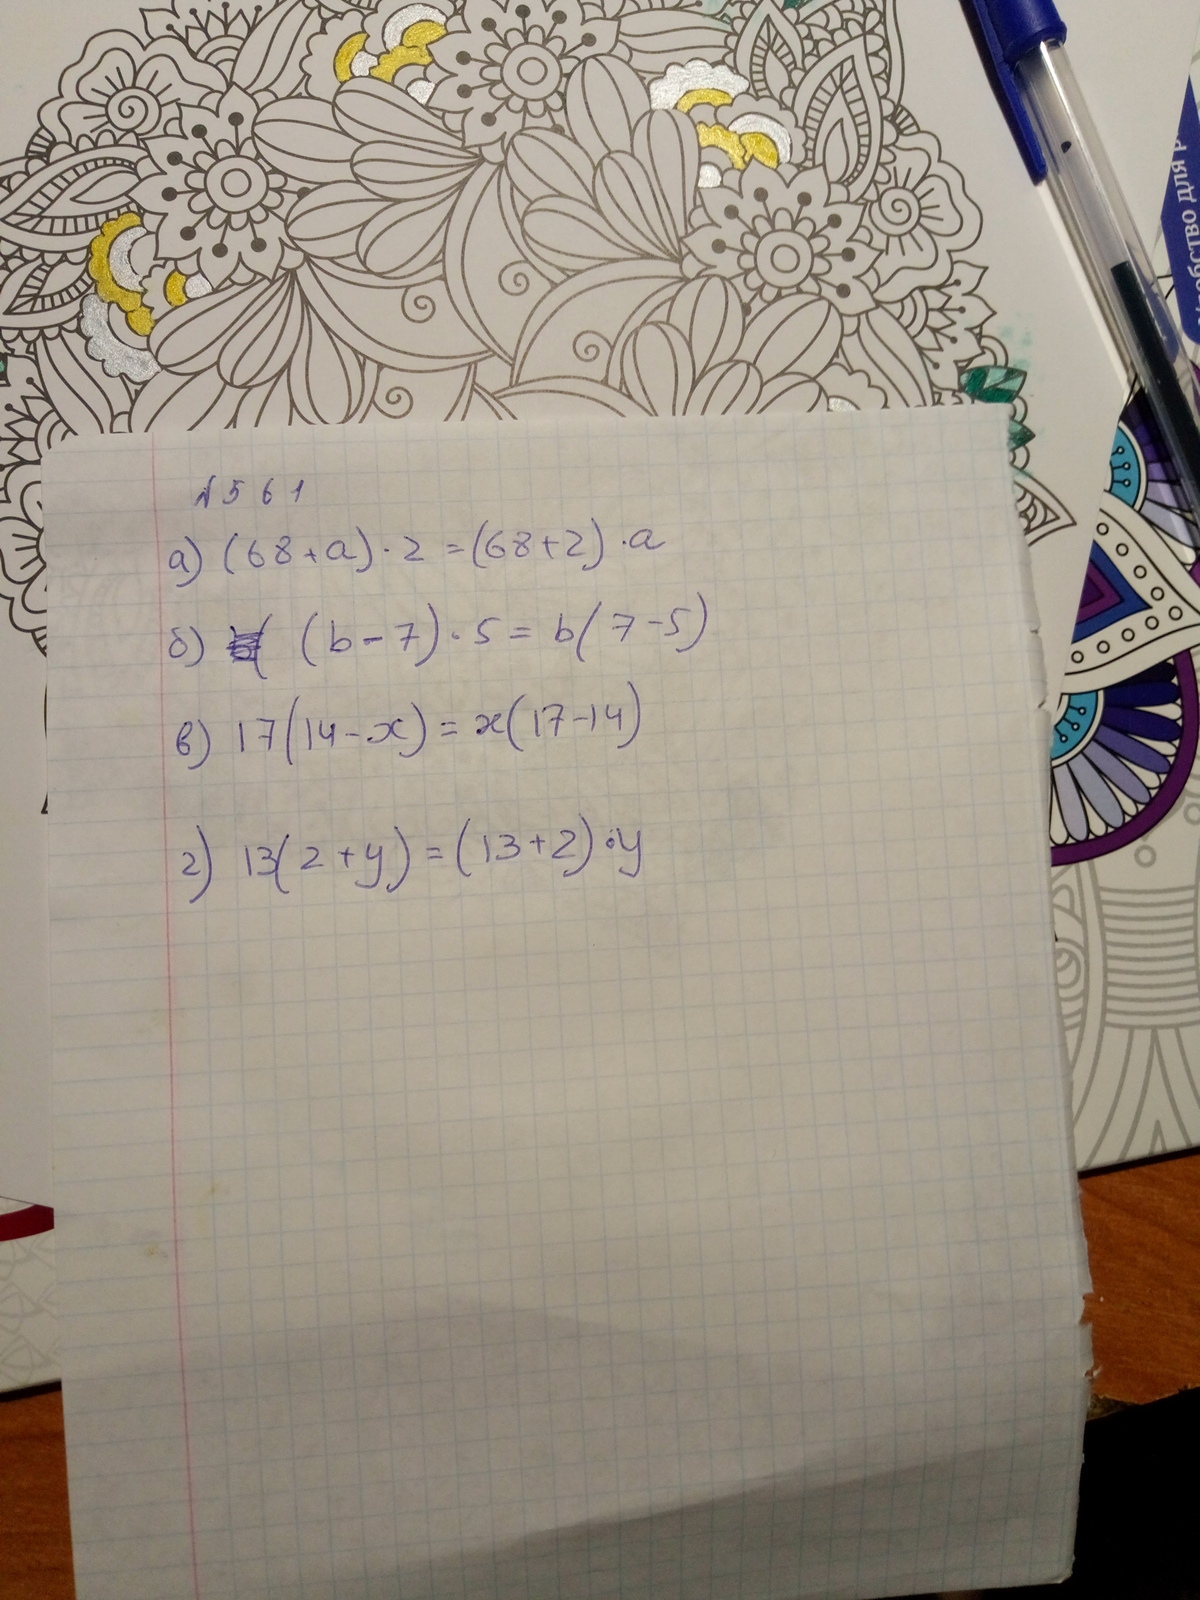 №561
а) (68+a)·2=(68+2)·a
б) (b-7)·5=b(7-5)
в) 17(14-x)=x(17-14)
г) 13(2+y)=(13+2)·y
ство для р